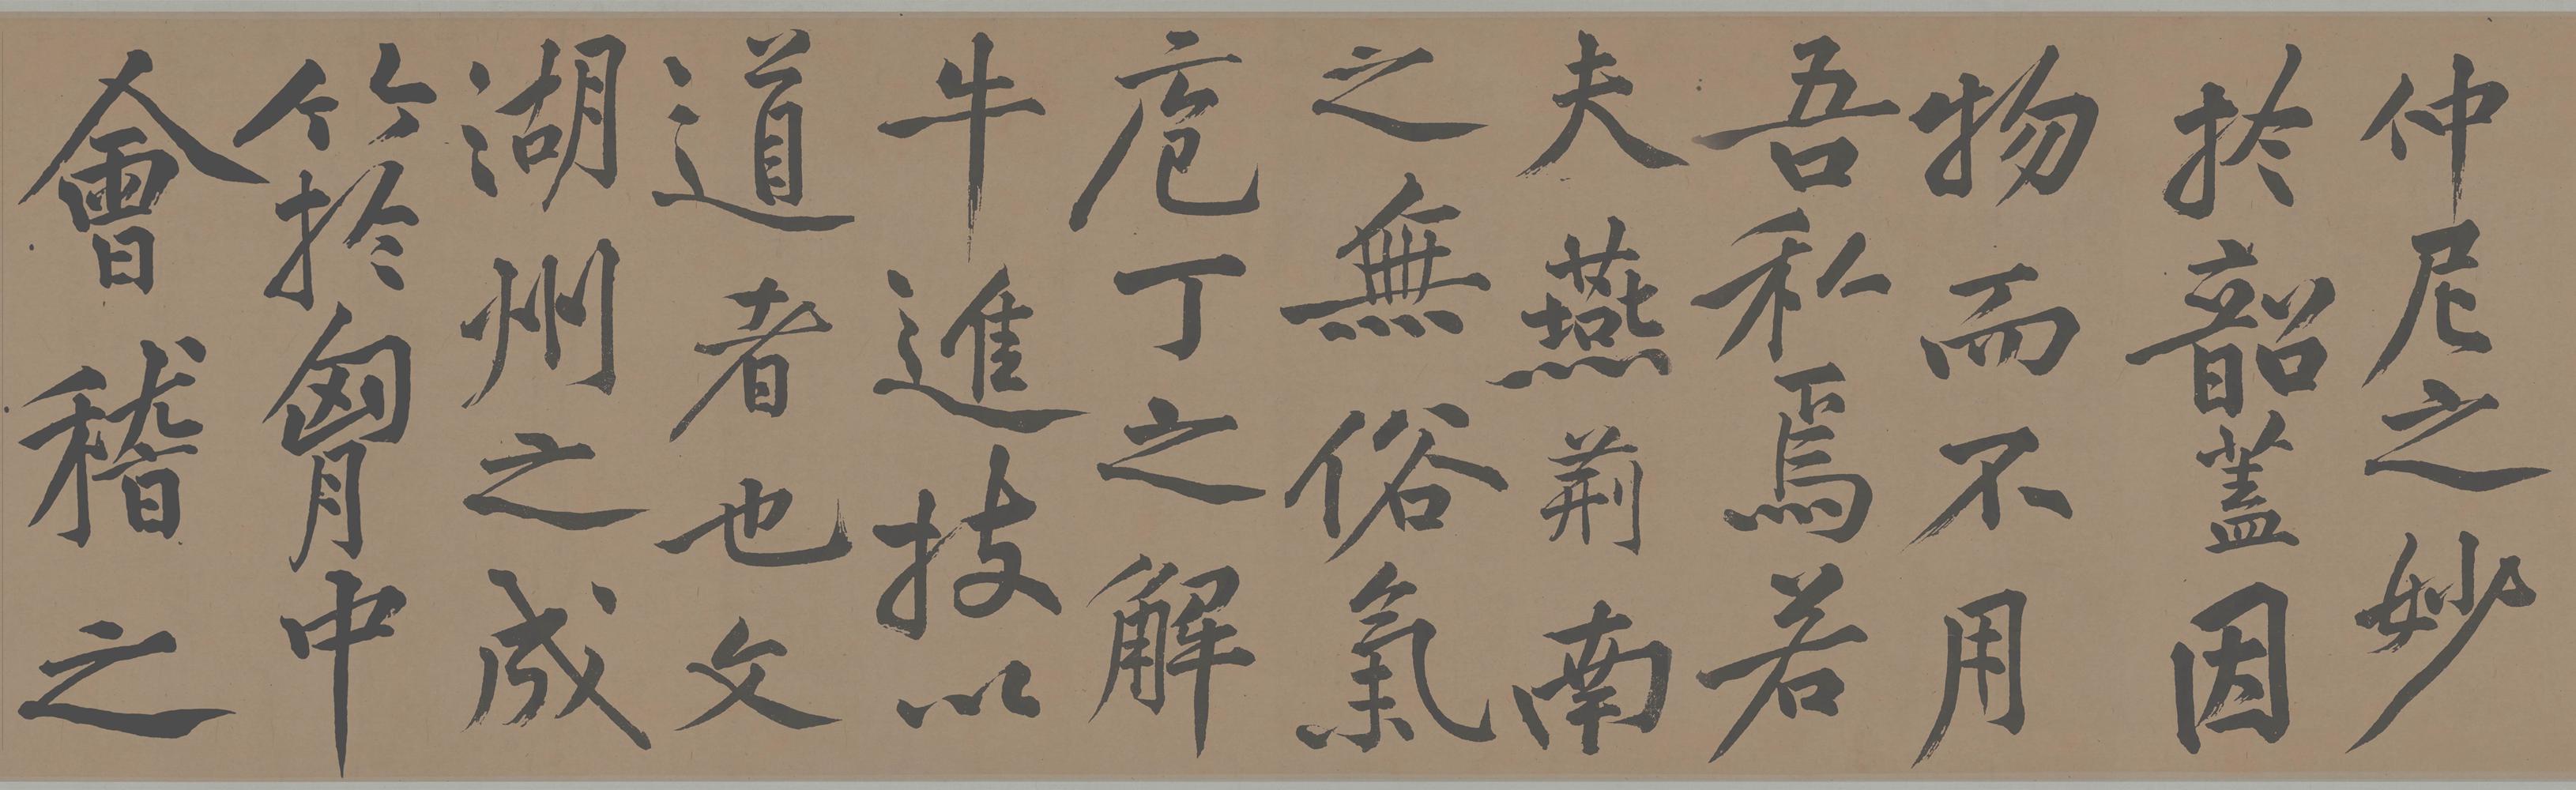 仲尼之妙
於韶蓋因
物而不用
吾私焉若
夫燕荆南
之無俗氣
庖丁之解
牛進技以
道者也文
湖州之成
竹於胷中
會稽之